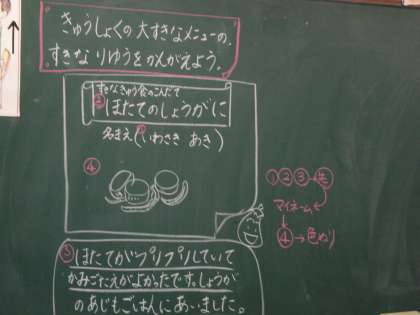 きゅうしょくの大すきなメニューの、
すきなりゆうをかんがえよう。
すきなきゅう食のこんだて
②ほたてのしょうがに
名まえ(①いわさき あき)
④
③ほたてがプリプリしていて
かみごたえがよかったです。しょうが
のあじもごはんにあいました。
①②③→先
マイネーム
↓
④→色ぬり